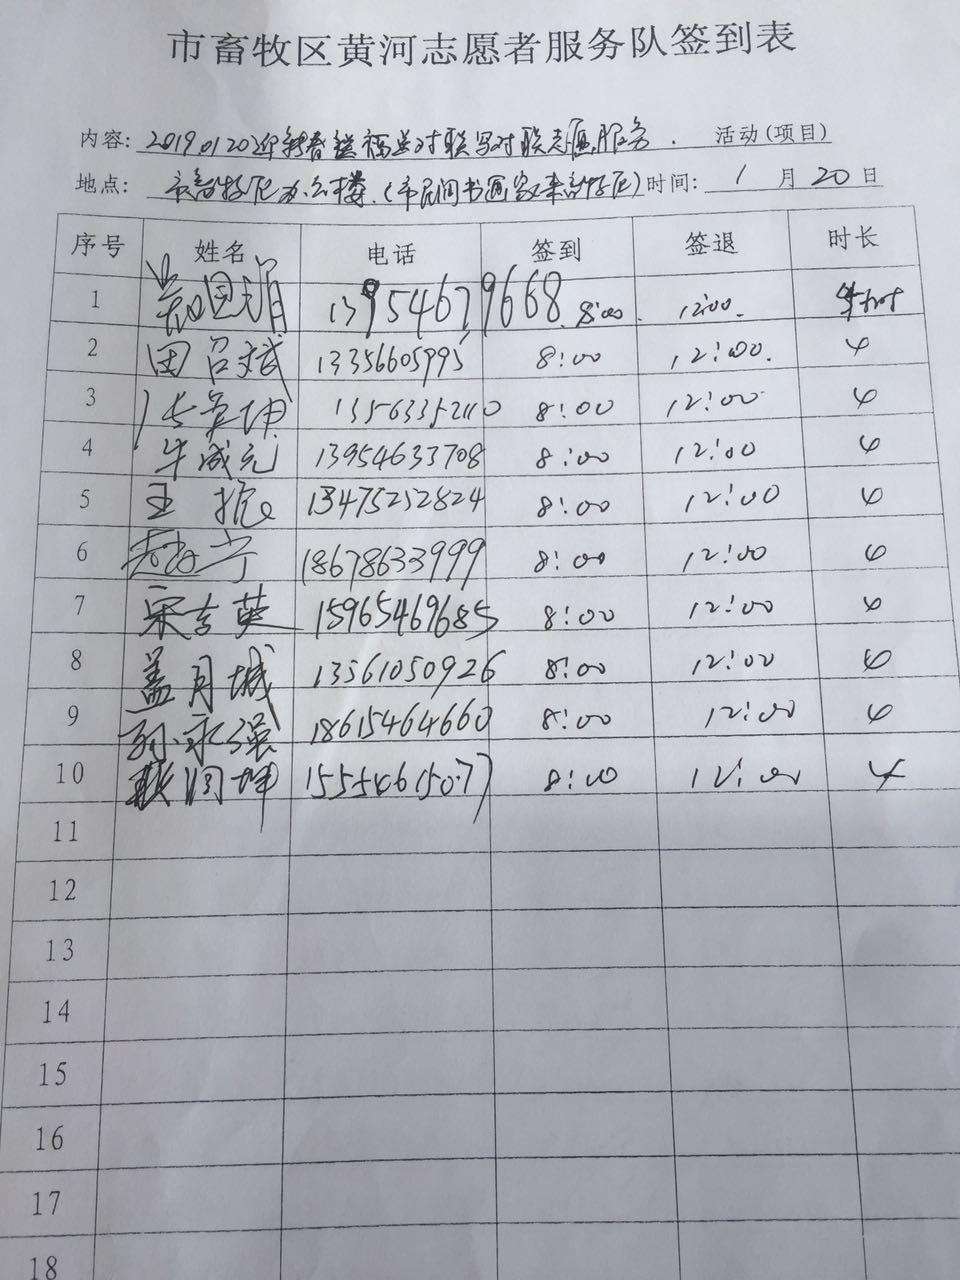 市畜牧区黄河志愿者服务队签到表
内容: 2019.01.20迎新春送福送对联写对联志愿服务. 活动(项目)
地点: 市畜牧区办公楼.(市民间书画家来畜牧区) 时间: 1月20日
序号 姓名 电话 签到 签退 时长
1 13954679668 8:00 12:00 4小时
2 田召斌 13356605995 8:00 12:00 4
3 13563352110 8:00 12:00 4
4 牛成元 13954633708 8:00 12:00 4
5 王 13475252824 8:00 12:00 4
6 赵宁 18678633999 8:00 12:00 4
7 宋吉英 15965469685 8:00 12:00 4
8 盖月城 13561050926 8:00 12:00 4
9 孙永强 18615464660 8:00 12:00 4
10 润坤 15554615077 8:00 12:00 4
11
12
13
14
15
16
17
18